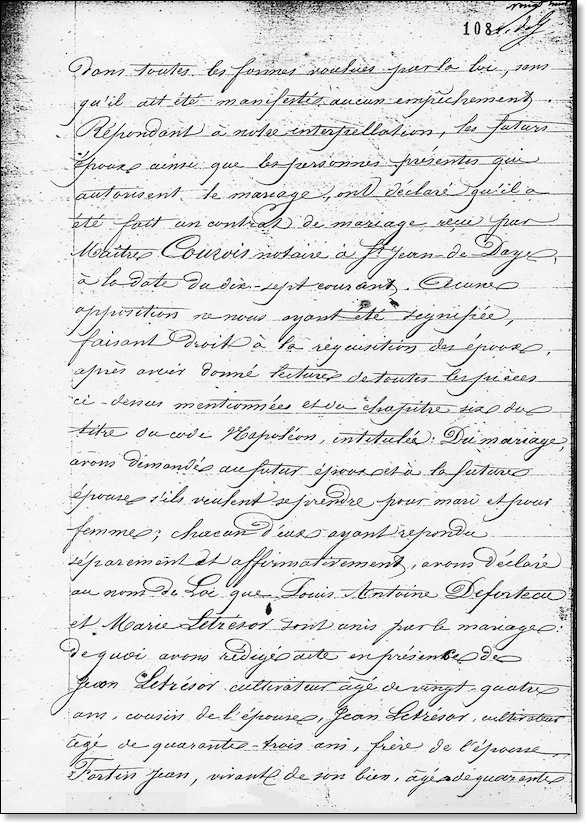 vingt huit
108
Dans toutes les formes voulues par la loi, sans
qu'il ait été manifesté aucun empêchement.
Répondant à notre interpellation, les futurs
époux ainsi que les personnes présentes qui
autorisent le mariage, ont déclaré qu'il a
été fait un contrat de mariage reçu par
Maître Courois notaire à St Jean-de-Daye,
à la date du dix-sept courant. Aucune
opposition ne nous ayant été segnifiée,
faisant Droit à la réquisition des époux,
après avoir donné lecture de toutes les pièces
ci-dessus mentionnées et du chapitre six du
titre du code Napoléon, intitulée: Du mariage,
avons demandé au futur époux et à la future
épouse s'ils veulent se prendre pour mari et pour
femme; chacun d'eux ayant repondu
séparement et affirmativement, avons déclaré
au nom de Loi que Louis Antoine Deforteau
et Marie Letrésor sont unis par le mariage:
de quoi avons rédigé acte en présence de
Jean Letrésor cultivateur âgé de vingt-quatre
ans, cousin de l'épouse, Jean Letrésor, cultivateur
âgé de quarante-trois ans, frère de l'épouse,
Fortin Jean, vivant de son bien, âgé de quarante